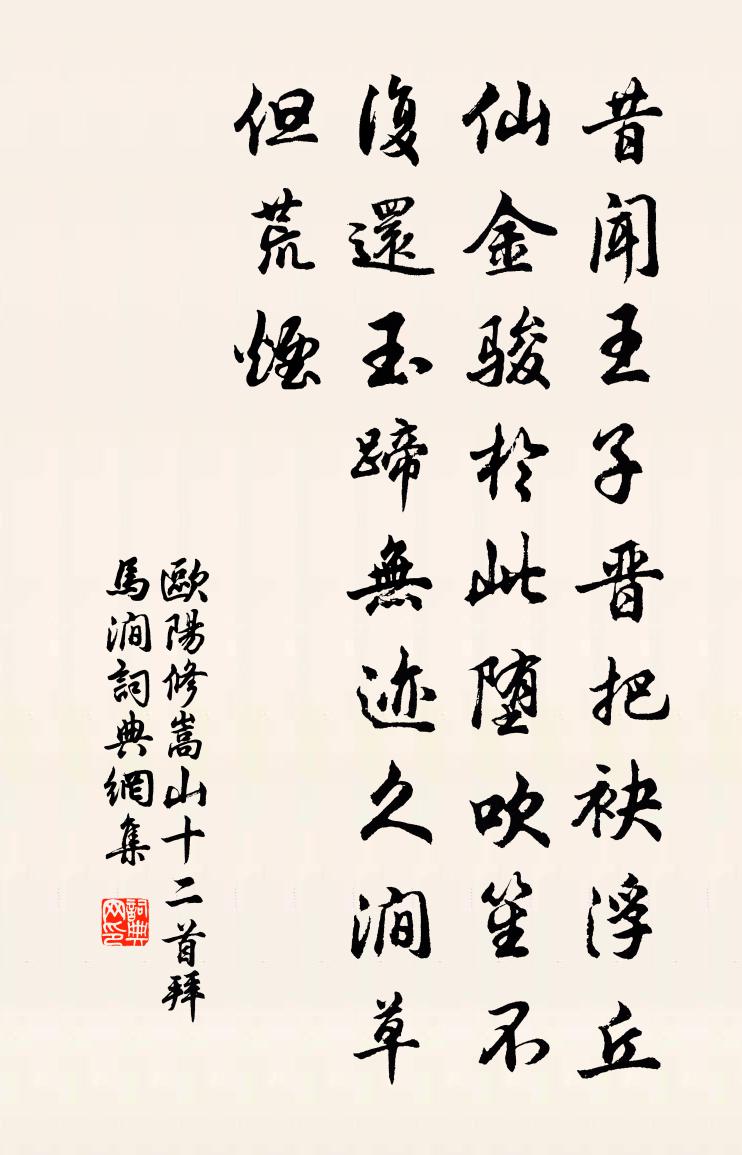 昔聞王子晋把袂浮丘
仙金骏於此堕吹笙不
復還玉蹄無迹久澗草
但荒煙
歐陽修嵩山十二首拜
馬澗詞典網集
詞典
网印